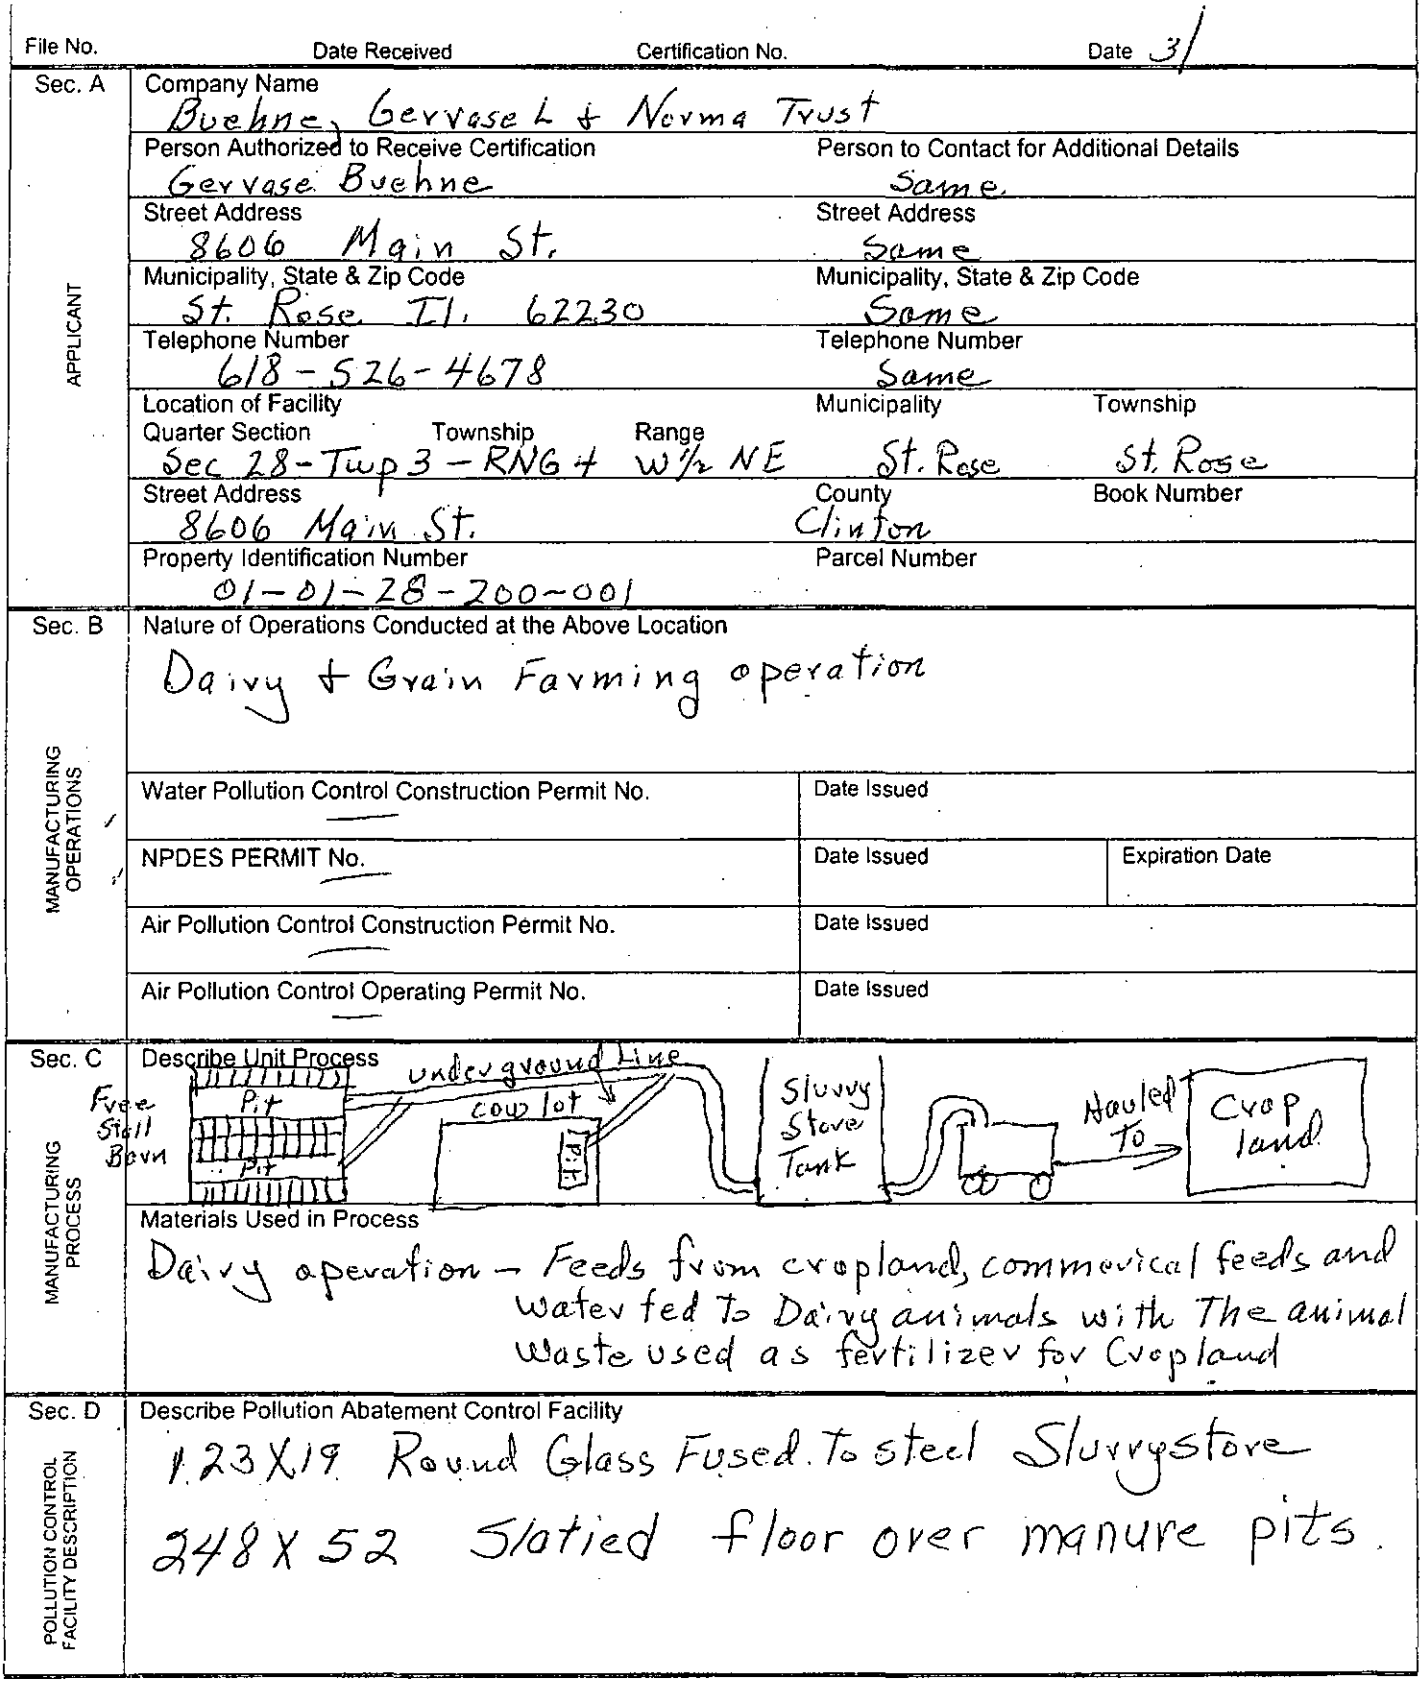 File No. Date Received Certification No. Date 3/
Sec. A
APPLICANT
Company Name
Buehne, Gervase L & Norma Trust
Person Authorized to Receive Certification Person to Contact for Additional Details
Gervase Buehne Same
Street Address Street Address
8606 Main St. Same
Municipality, State & Zip Code Municipality, State & Zip Code
St. Rose Il. 62230 Same
Telephone Number Telephone Number
618-526-4678 Same
Location of Facility Municipality Township
Quarter Section Township Range
Sec 28-Twp 3-RNG 4 W 1/2 NE St. Rose St. Rose
Street Address County Book Number
8606 Main St. Clinton
Property Identification Number Parcel Number
01-01-28-200-001
Sec. B
MANUFACTURING
OPERATIONS
Nature of Operations Conducted at the Above Location
Dairy & Grain Farming operation
Water Pollution Control Construction Permit No. Date Issued
NPDES PERMIT No. Date Issued Expiration Date
Air Pollution Control Construction Permit No. Date Issued
Air Pollution Control Operating Permit No. Date Issued
Sec. C
MANUFACTURING
PROCESS
Describe Unit Process
Free
Stall
Barn
Pit
Pit
underground Line
cow lot
Pit
Slurry
Store
Tank
Hauled
To
Crop
land
Materials Used in Process
Dairy operation - Feeds from cropland, commerical feeds and
water fed to Dairy animals with The animal
waste used as fertilizer for Cropland
Sec. D
POLLUTION CONTROL
FACILITY DESCRIPTION
Describe Pollution Abatement Control Facility
1.23X19 Round Glass Fused To steel Slurrystore
248 X 52 Slatied floor over manure pits.